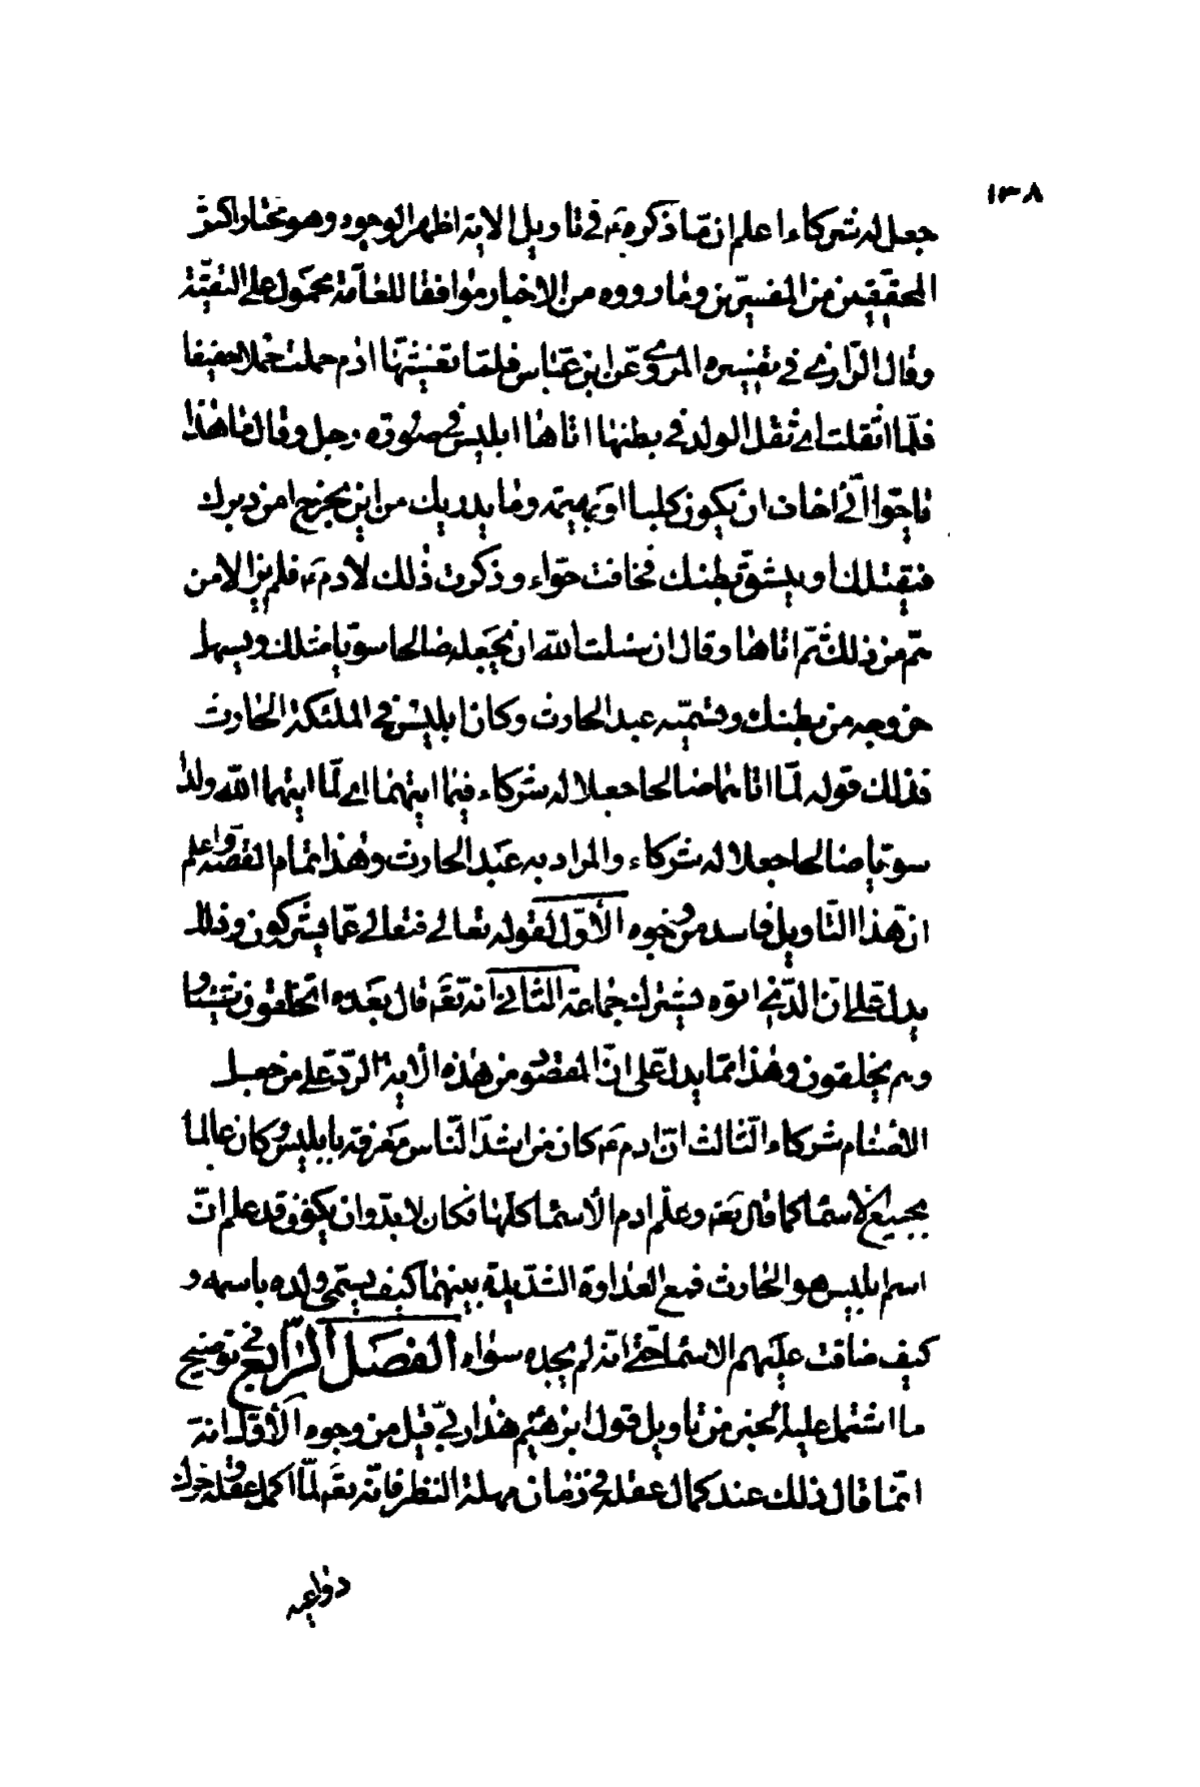 ١٣٨
جعل له شركاء اعلم ان ما ذكره ع في تاويل الاية اظهر الوجوه وهو مختار اكثر
المحققين من المفسرين وما رووه من الاخبار موافقا للعامة محمول على التقية
وقال الرازي في تفسيره المروي عن ابن عباس فلما تغشيها ادم حملت حملا خفيفا
فلما اثقلت اي ثقل الولد في بطنها اتاها ابليس في صورة رجل وقال ما هذا
يا حوا اني اخاف ان يكون كلبا او بهيمة وما يدريك من اين يخرج امن دبرك
فيقتلك او ينشق بطنك فخافت حواء وذكرت ذلك لادم ع فلم يزالا من
هم من ذلك ثم اتاها وقال ان سئلت الله ان يجعله صالحا سويا مثلك ويسهل
خروجه من بطنك وتسميه عبد الحارث وكان ابليس في الملئكة الحارث
فذلك قوله لما اتاهما صالحا جعلا له شركاء فيما اتيهما اي لما اتيهما الله ولدا
سويا صالحا جعلا له شركاء والمراد به عبد الحارث وهذا تمام القصة واعلم
ان هذا التاويل فاسد من وجوه الأول لقوله تعالى فتعالى عما يشركون وذلك
يدل على ان الذين اتوه بشرك جماعة الثاني انه تعم قال بعده اتخلقون شيئا و
هم يخلقون وهذا مما يدل على ان المقصود من هذه الاية الرد على من جعل
الاصنام شركاء الثالث ان ادم ع كان من اشد الناس معرفة بابليس وكان عالما
بجميع الاسماء كما قال تعم وعلم ادم الأسماء كلها فكان لا بد وان يكون قد علم ان
اسم ابليس هو الحارث فمع العداوة الشديدة بينهما كيف يسمي ولده باسمه و
كيف ضاقت عليهم الاسماء حتى انه لم يجد سواه الفصل الرابع في توضيح
ما اشتمل عليه الخبر من تاويل قول ابرهيم هذا ربي قيل من وجوه الأول انه
انما قال ذلك عند كمال عقله في زمان مهلة النظر فانه تعم لما اكمل عقله وحرك
دواعيه